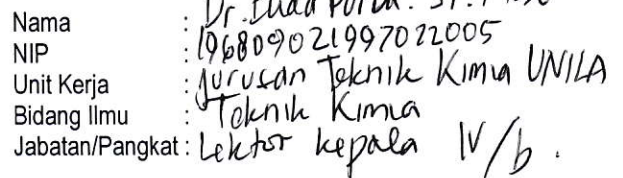 Nama : Dr.
NIP : 196809021997022005
Unit Kerja : Jurusan Teknik Kimia UNILA
Bidang Ilmu : Teknik Kimia
Jabatan/Pangkat : Lektor kepala IV/b.